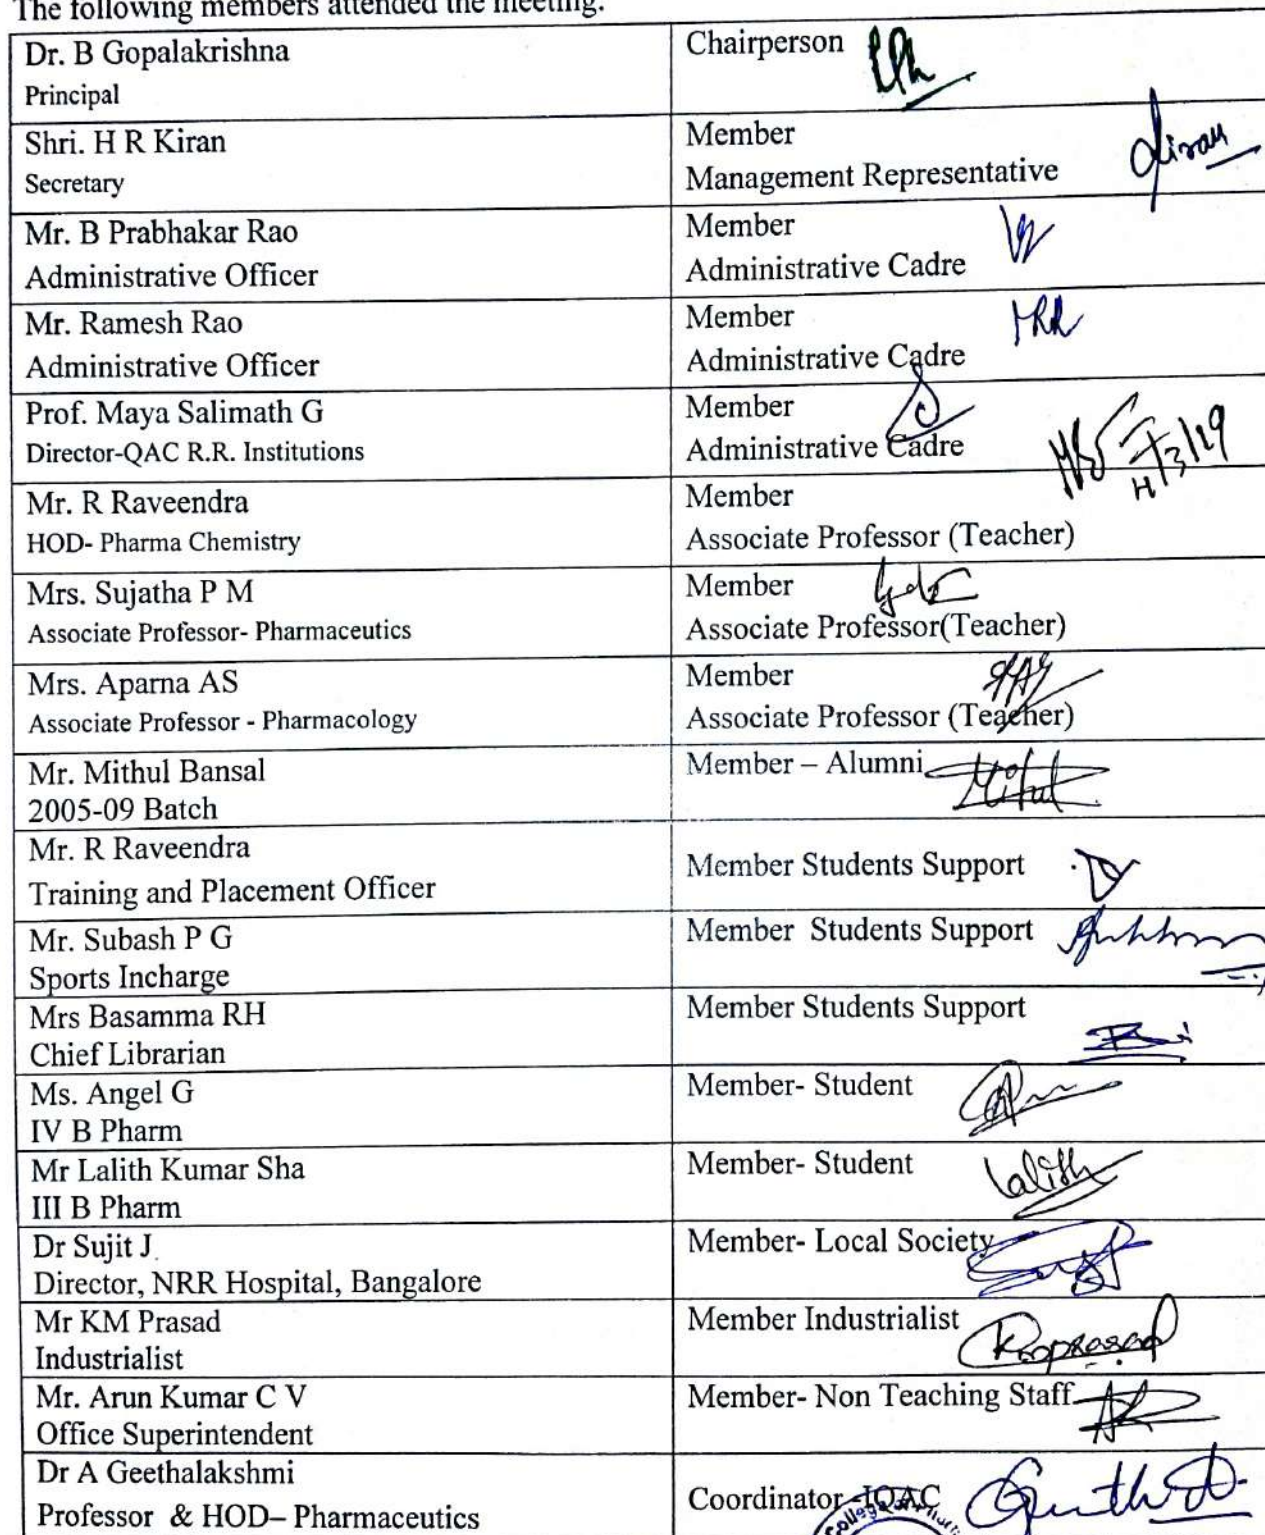 The following members attended the meeting.
Dr. B Gopalakrishna
Principal
Chairperson
Shri. H R Kiran
Secretary
Member
Management Representative
Kiran
Mr. B Prabhakar Rao
Administrative Officer
Member
Administrative Cadre
Mr. Ramesh Rao
Administrative Officer
Member
Administrative Cadre
Prof. Maya Salimath G
Director-QAC R.R. Institutions
Member
Administrative Cadre
Mr. R Raveendra
HOD- Pharma Chemistry
Member
Associate Professor (Teacher)
Mrs. Sujatha P M
Associate Professor- Pharmaceutics
Member
Associate Professor(Teacher)
Mrs. Aparna AS
Associate Professor - Pharmacology
Member
Associate Professor (Teacher)
Mr. Mithul Bansal
2005-09 Batch
Member – Alumni
Mr. R Raveendra
Training and Placement Officer
Member Students Support
Mr. Subash P G
Sports Incharge
Member Students Support
Mrs Basamma RH
Chief Librarian
Member Students Support
Ms. Angel G
IV B Pharm
Member- Student
Mr Lalith Kumar Sha
III B Pharm
Member- Student
Lalith
Dr Sujit J
Director, NRR Hospital, Bangalore
Member- Local Society
Mr KM Prasad
Industrialist
Member Industrialist
Kmprasad
Mr. Arun Kumar C V
Office Superintendent
Member- Non Teaching Staff
Dr A Geethalakshmi
Professor & HOD– Pharmaceutics
Coordinator -IQAC
College of